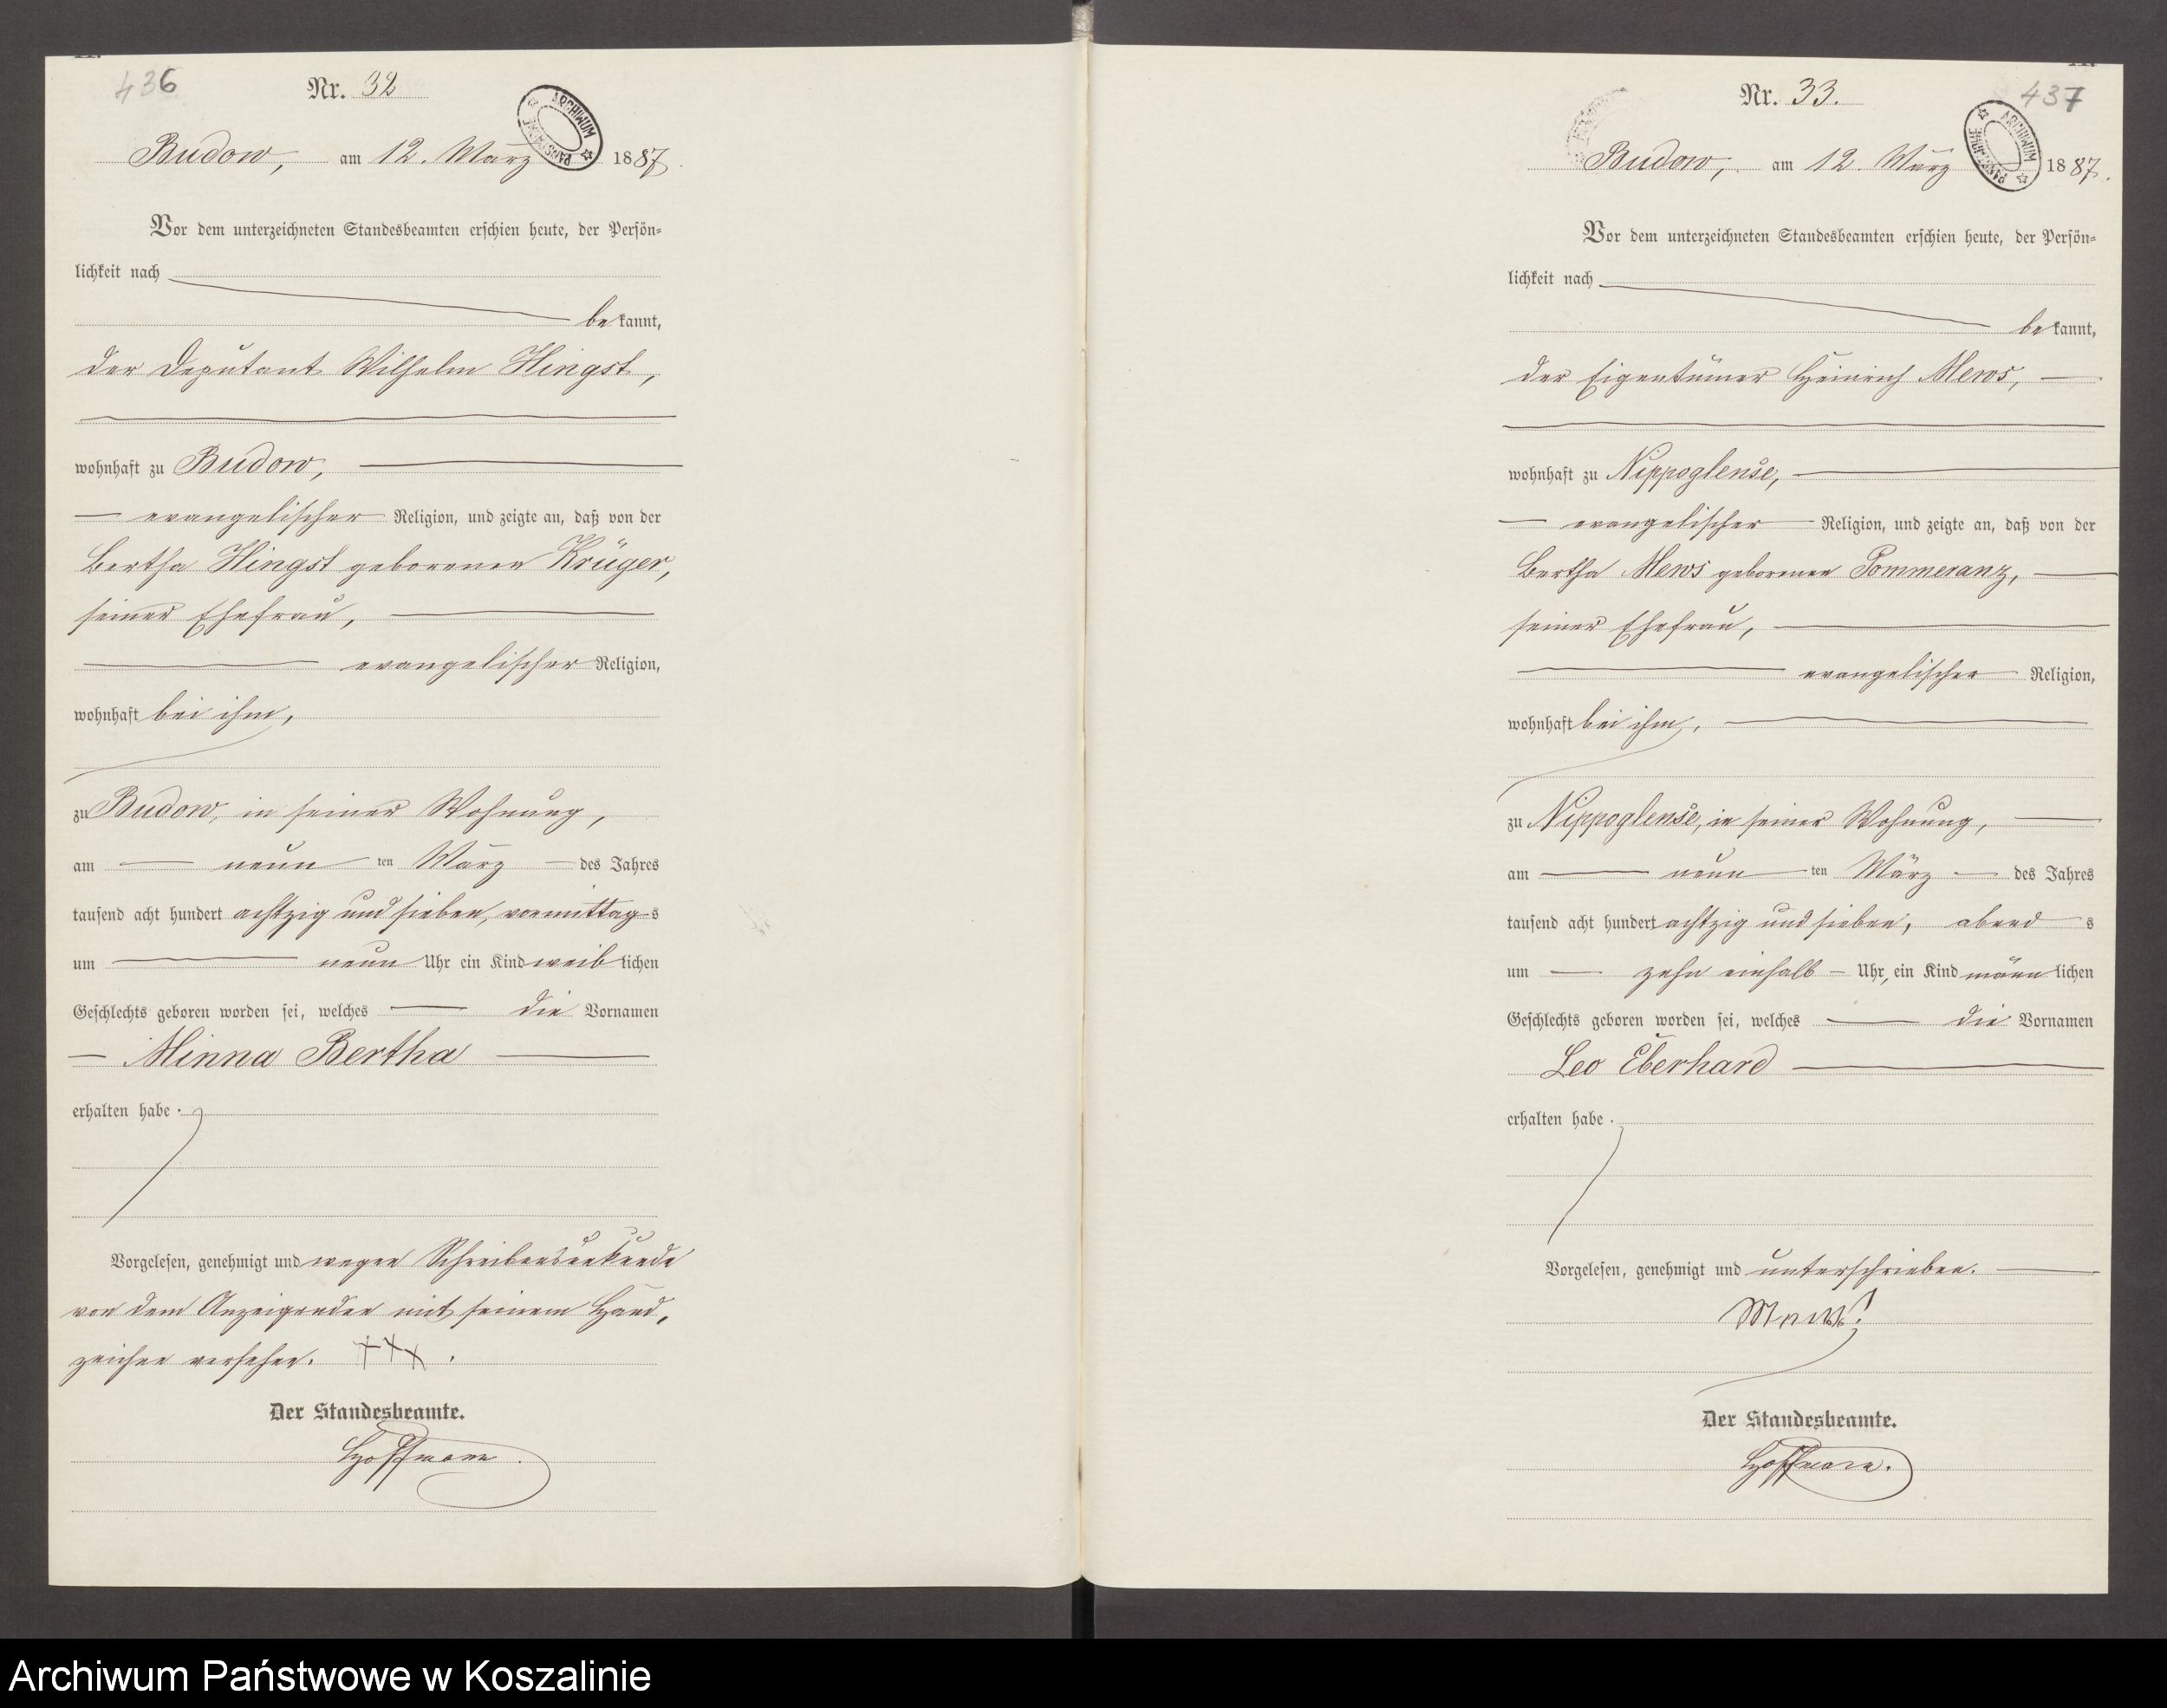 436
Nr. 32
ARCHIWUM PAŃSTWOWE
Budow, am 12. März 1887.
Vor dem unterzeichneten Standesbeamten erschien heute, der Persön=
lichkeit nach
bekannt,
der Deputant Wilhelm Hingst,
wohnhaft zu Budow,
evangelischer Religion, und zeigte an, daß von der
Bertha Hingst geborenen Krüger,
seiner Ehefrau,
evangelischer Religion,
wohnhaft bei ihm,
zu Budow, in seiner Wohnung,
am neunten März des Jahres
tausend acht hundert achtzig und sieben, vormittags
um neun Uhr ein Kind weiblichen
Geschlechts geboren worden sei, welches die Vornamen
Minna Bertha
erhalten habe.
Vorgelesen, genehmigt und wegen Schreibensunkunde
von dem Anzeigenden mit seinem Hand,
zeichen versehen. +++.
Der Standesbeamte.
Hoffmann.
437
Nr. 33.
ARCHIWUM PAŃSTWOWE
Budow, am 12. März 1887.
Vor dem unterzeichneten Standesbeamten erschien heute, der Persön=
lichkeit nach
bekannt,
der Eigentümer Heinrich Mews,
wohnhaft zu Nippoglense,
evangelischer Religion, und zeigte an, daß von der
Bertha Mews geborenen Pommeranz,
seiner Ehefrau,
evangelischer Religion,
wohnhaft bei ihm,
zu Nippoglense, in seiner Wohnung,
am neunten März des Jahres
tausend acht hundert achtzig und sieben, abends
um zehn einhalb Uhr, ein Kind männlichen
Geschlechts geboren worden sei, welches die Vornamen
Leo Eberhard
erhalten habe.
Vorgelesen, genehmigt und unterschrieben.
Der Standesbeamte.
Hoffmann.
Archiwum Państwowe w Koszalinie